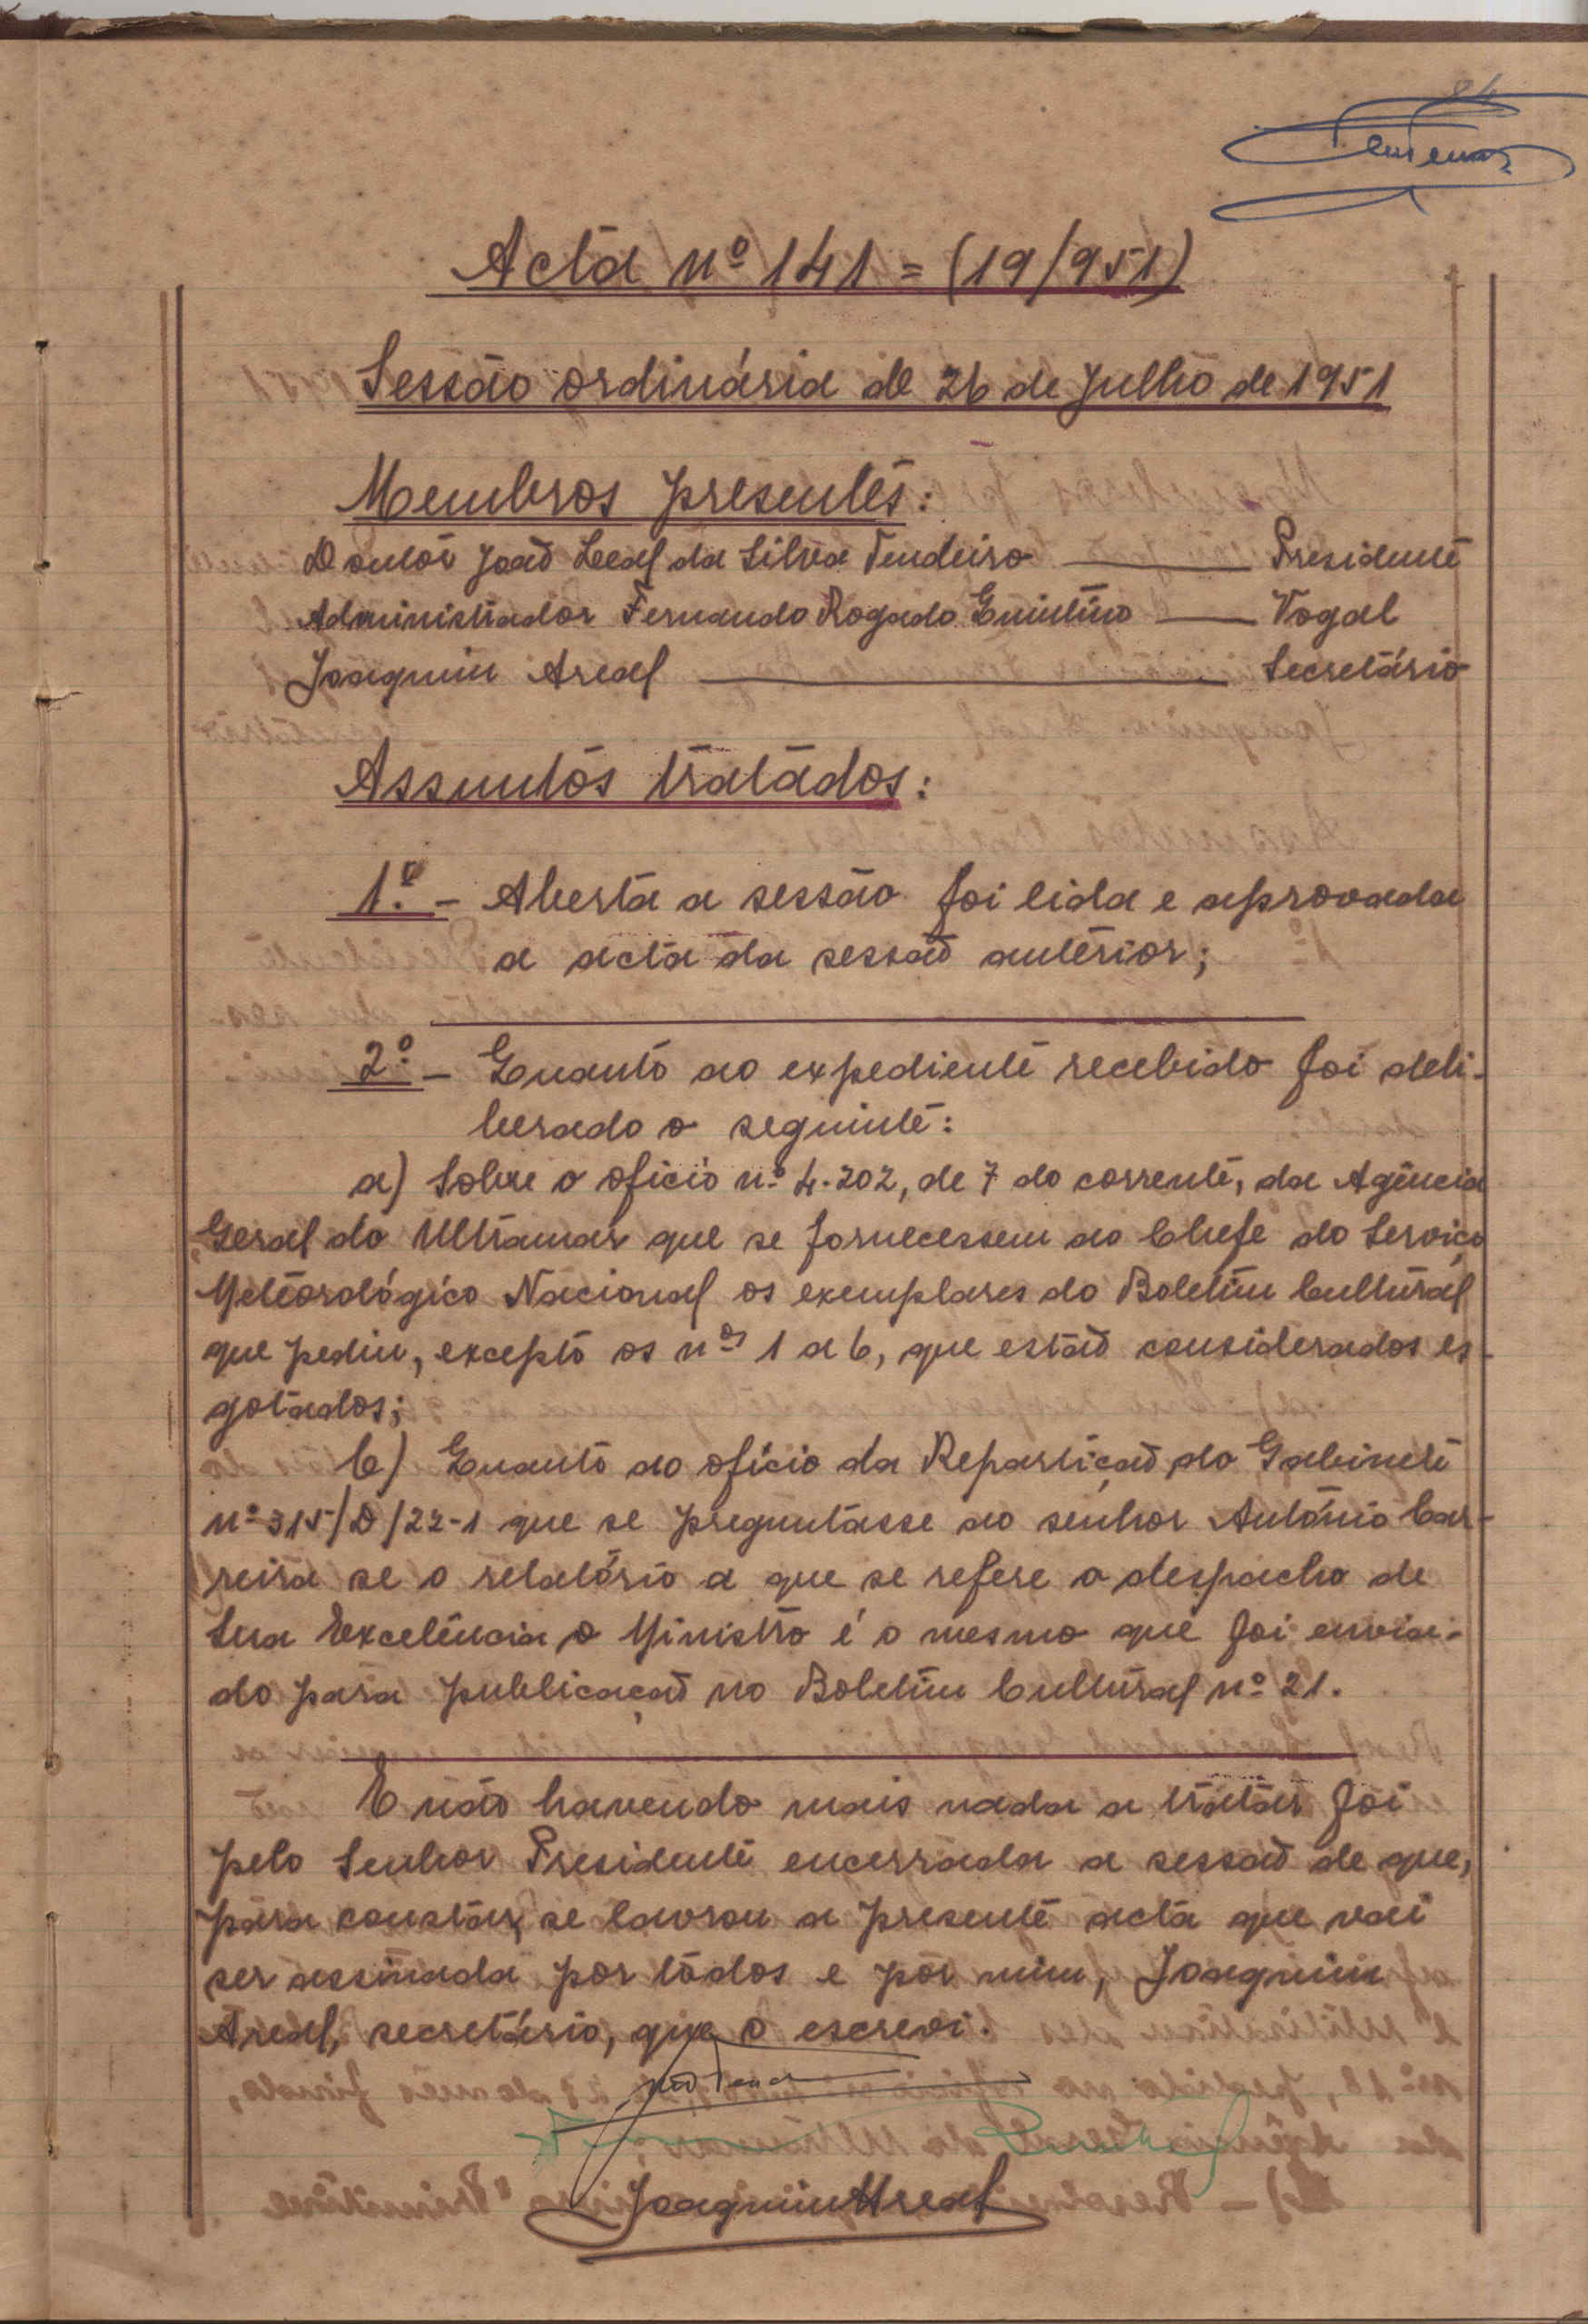 84
Acta nº 141 = (19/951)
Sessão ordinária de 26 de Julho de 1951
Membros presentes:
Doutor João Leal da Silva Tendeiro — Presidente
Administrador Fernando Rogado Quintino — Vogal
Joaquim Areal — Secretário
Assuntos tratados:
1º. - Aberta a sessão foi lida e aprovada
a acta da sessão anterior;
2º. - Quanto ao expediente recebido foi deli-
berado o seguinte:
a) Sobre o ofício nº 4.202, de 7 do corrente, da Agência
Geral do Ultramar que se fornecessem ao Chefe do Serviço
Meteorológico Nacional os exemplares do Boletim Cultural
que pediu, excepto os nºs 1 a 6, que estão considerados es-
gotados;
b) Quanto ao ofício da Repartição do Gabinete
nº 315/D/22-1 que se preguntasse ao senhor António Car-
reira se o relatório a que se refere o despacho de
Sua Excelência o Ministro é o mesmo que foi envia-
do para publicação no Boletim Cultural nº 21.
E não havendo mais nada a tratar foi
pelo Senhor Presidente encerrada a sessão de que,
para constar, se lavrou a presente acta que vai
ser assinada por todos e por mim, Joaquim
Areal, secretário, que o escrevi.
Joaquim Areal